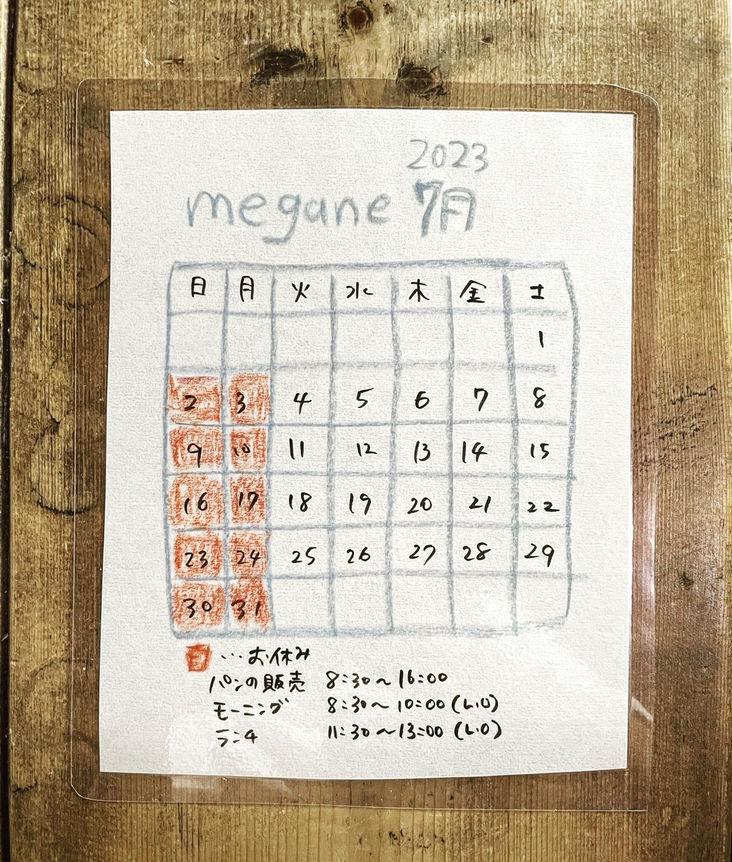 2023
megane 7月
日 月 火 水 木 金 土
1
2 3 4 5 6 7 8
9 10 11 12 13 14 15
16 17 18 19 20 21 22
23 24 25 26 27 28 29
30 31
日…お休み
パンの販売 8:30〜16:00
モーニング 8:30〜10:00(L.O)
ランチ 11:30〜13:00(L.O)